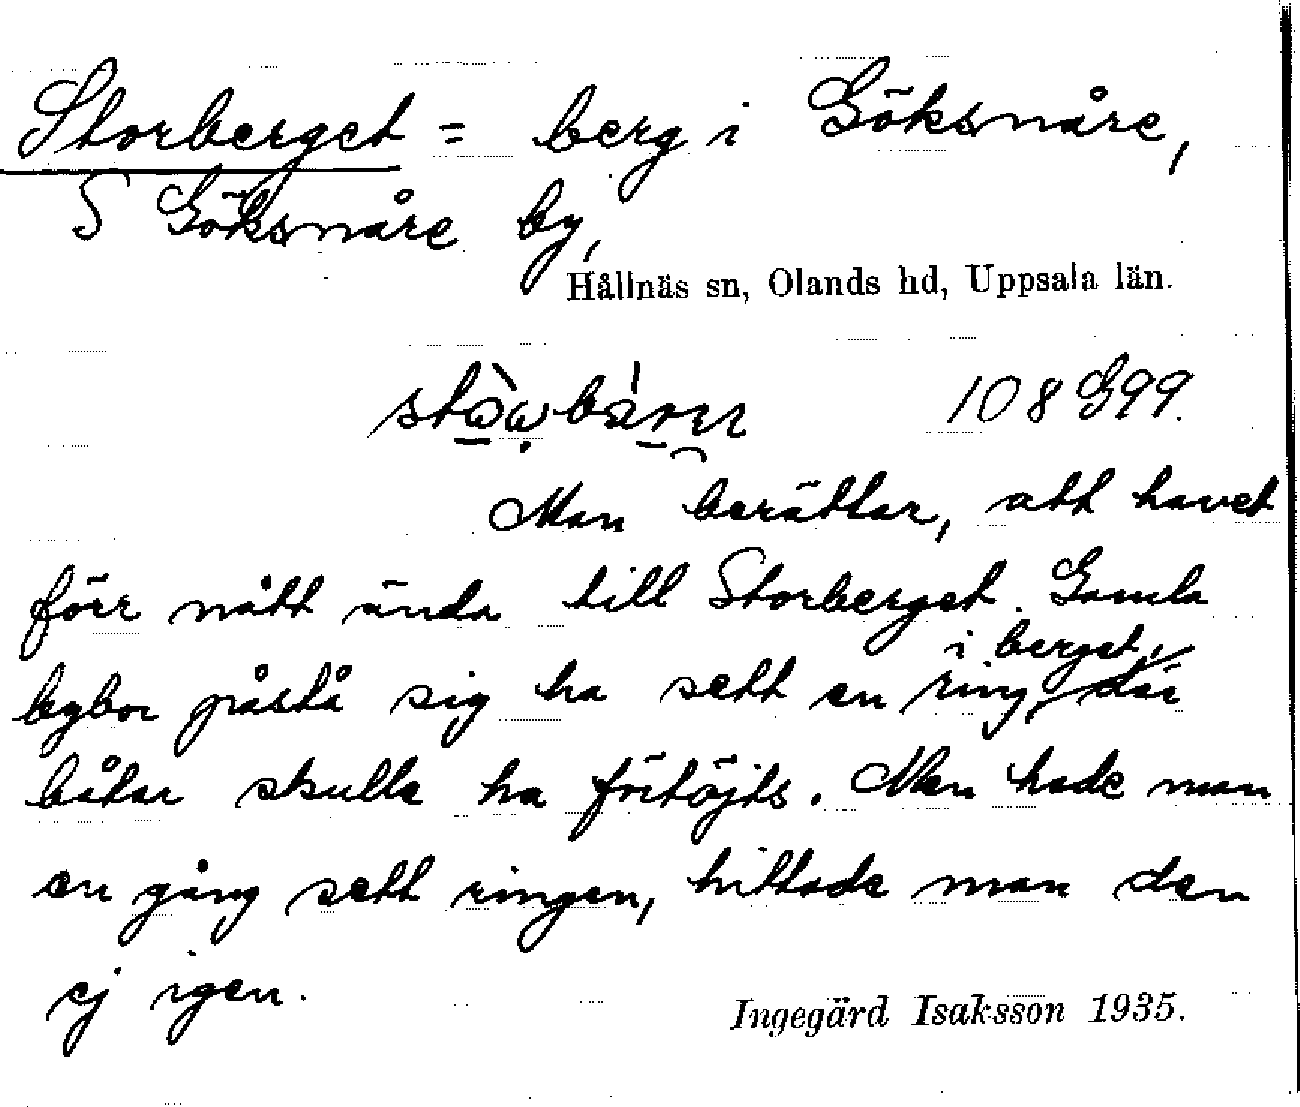 Storberget = berg i Göksnåre,
S Göksnåre by,
Hållnäs sn, Olands hd, Uppsala län.
108 G99.
Man berättar, att havet
förr nått ända till Storberget. Gamla
bybor påstå sig ha sett en ring i berget, där
båtar skulle ha förtöjts. Men hade man
en gång sett ringen, hittade man den
ej igen.
Ingegärd Isaksson 1935.